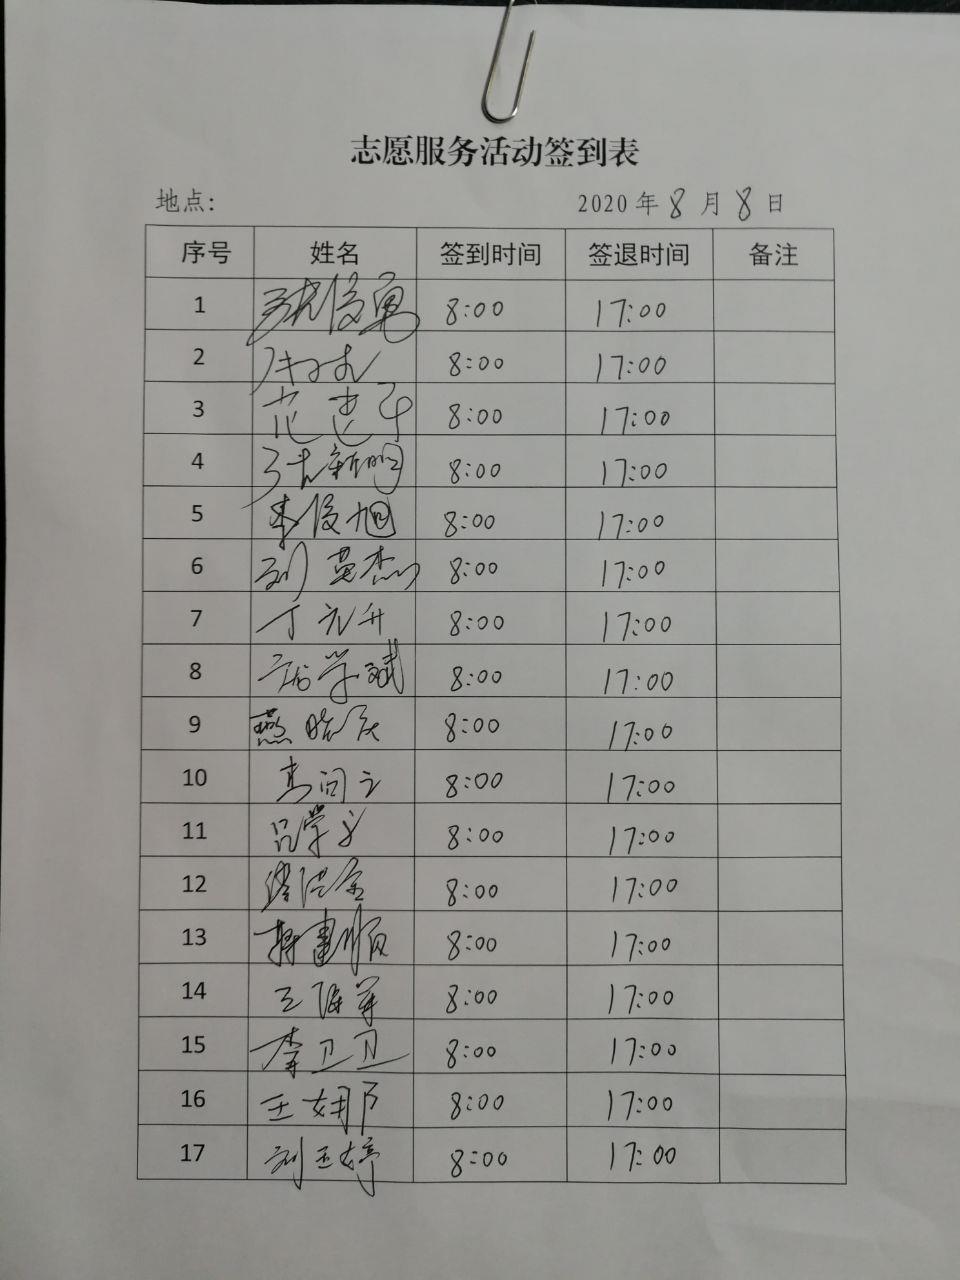 志愿服务活动签到表
地点: 2020年8月8日
序号 姓名 签到时间 签退时间 备注
1 张俊勇 8:00 17:00
2 8:00 17:00
3 范建平 8:00 17:00
4 张新明 8:00 17:00
5 朱俊旭 8:00 17:00
6 刘英杰 8:00 17:00
7 丁元升 8:00 17:00
8 学斌 8:00 17:00
9 燕晓庆 8:00 17:00
10 8:00 17:00
11 吕学文 8:00 17:00
12 8:00 17:00
13 韩建顺 8:00 17:00
14 王维军 8:00 17:00
15 李卫卫 8:00 17:00
16 王娜 8:00 17:00
17 刘玉婷 8:00 17:00